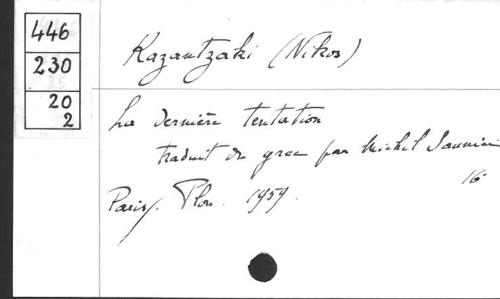 446
230
20
2
Kazantzaki (Nikos)
La dernière tentation
traduit du grec par Michel Saunier
16°
Paris, Plon. 1959.